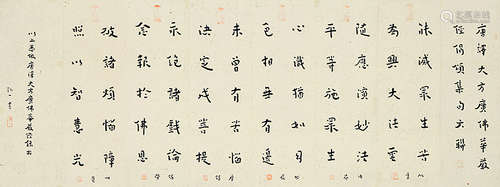 唐譯大方廣佛華嚴
經偈頌集句大聯
能滅眾生苦
為興大法雲
隨應演妙法
平等施眾生
心淨猶如日
色相無有邊
未曾有苦惱
決定成菩提
永絕諸戲論
念報於佛恩
破諸煩惱障
照以智慧光
以上悉依唐譯大方廣佛華嚴經錄出